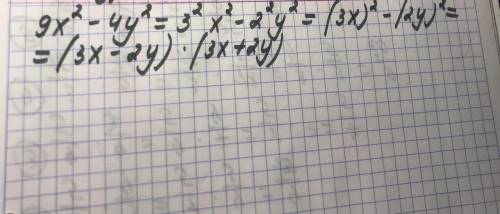 9x² - 4y² = 3² x² - 2² y² = (3x)² - (2y)² =
= (3x - 2y) · (3x + 2y)